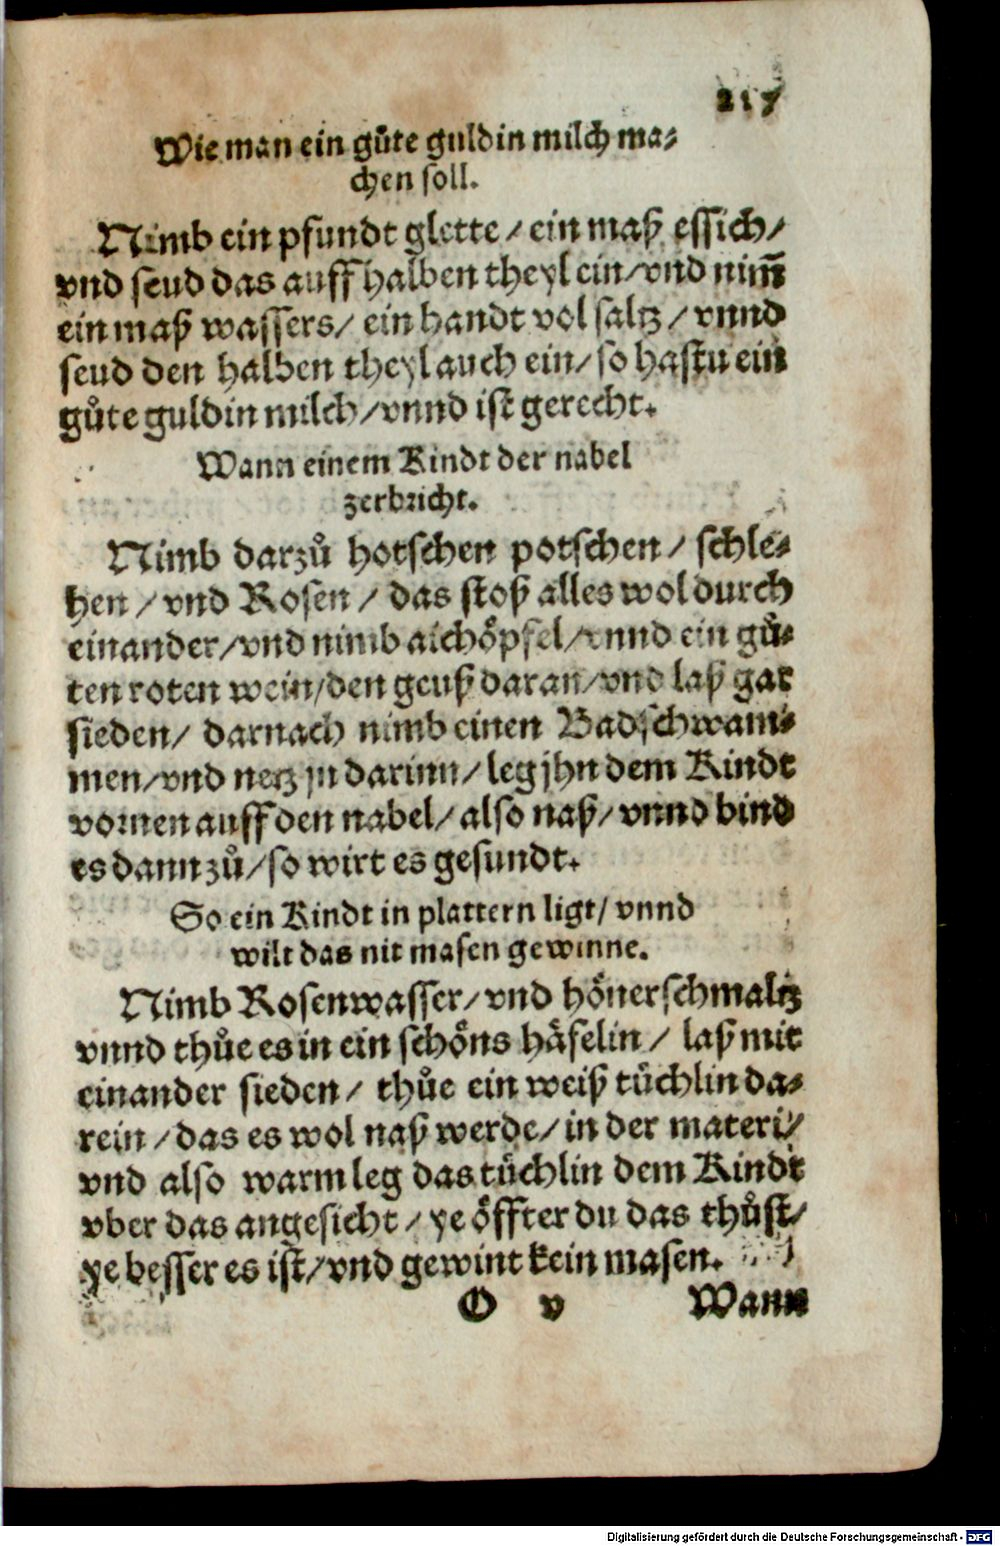 217
Wie man ein gůte guldin milch ma⸗
chen soll.
Nimb ein pfundt glette / ein maß essich /
vnd seud das auff halben theyl ein / vnd nim̃
ein maß wassers / ein handt vol saltz / vnnd
seud den halben theyl auch ein / so hastu ein
gůte guldin milch / vnnd ist gerecht.
Wann einem Kindt der nabel
zerbricht.
Nimb darzů hotschen potschen / schle⸗
hen / vnd Rosen / das stoß alles wol durch
einander / vnd nimb aichöpfel / vnnd ein gů⸗
ten roten wein / den geuß daran / vnd laß gar
sieden / darnach nimb einen Badschwam⸗
men / vnd netz jn darinn / leg jhn dem Kindt
vornen auff den nabel / also naß / vnnd bind
es dann zů / so wirt es gesundt.
So ein Kindt in plattern ligt / vnnd
wilt das nit masen gewinne.
Nimb Rosenwasser / vnd hönerschmaltz
vnnd thůe es in ein schöns häfelin / laß mit
einander sieden / thůe ein weiß tüchlin da⸗
rein / das es wol naß werde / in der materi /
vnd also warm leg das tüchlin dem Kindt
vber das angesicht / ye öffter du das thůst /
ye besser es ist / vnd gewint kein masen.
O v Wann
Digitalisierung gefördert durch die Deutsche Forschungsgemeinschaft - DFG